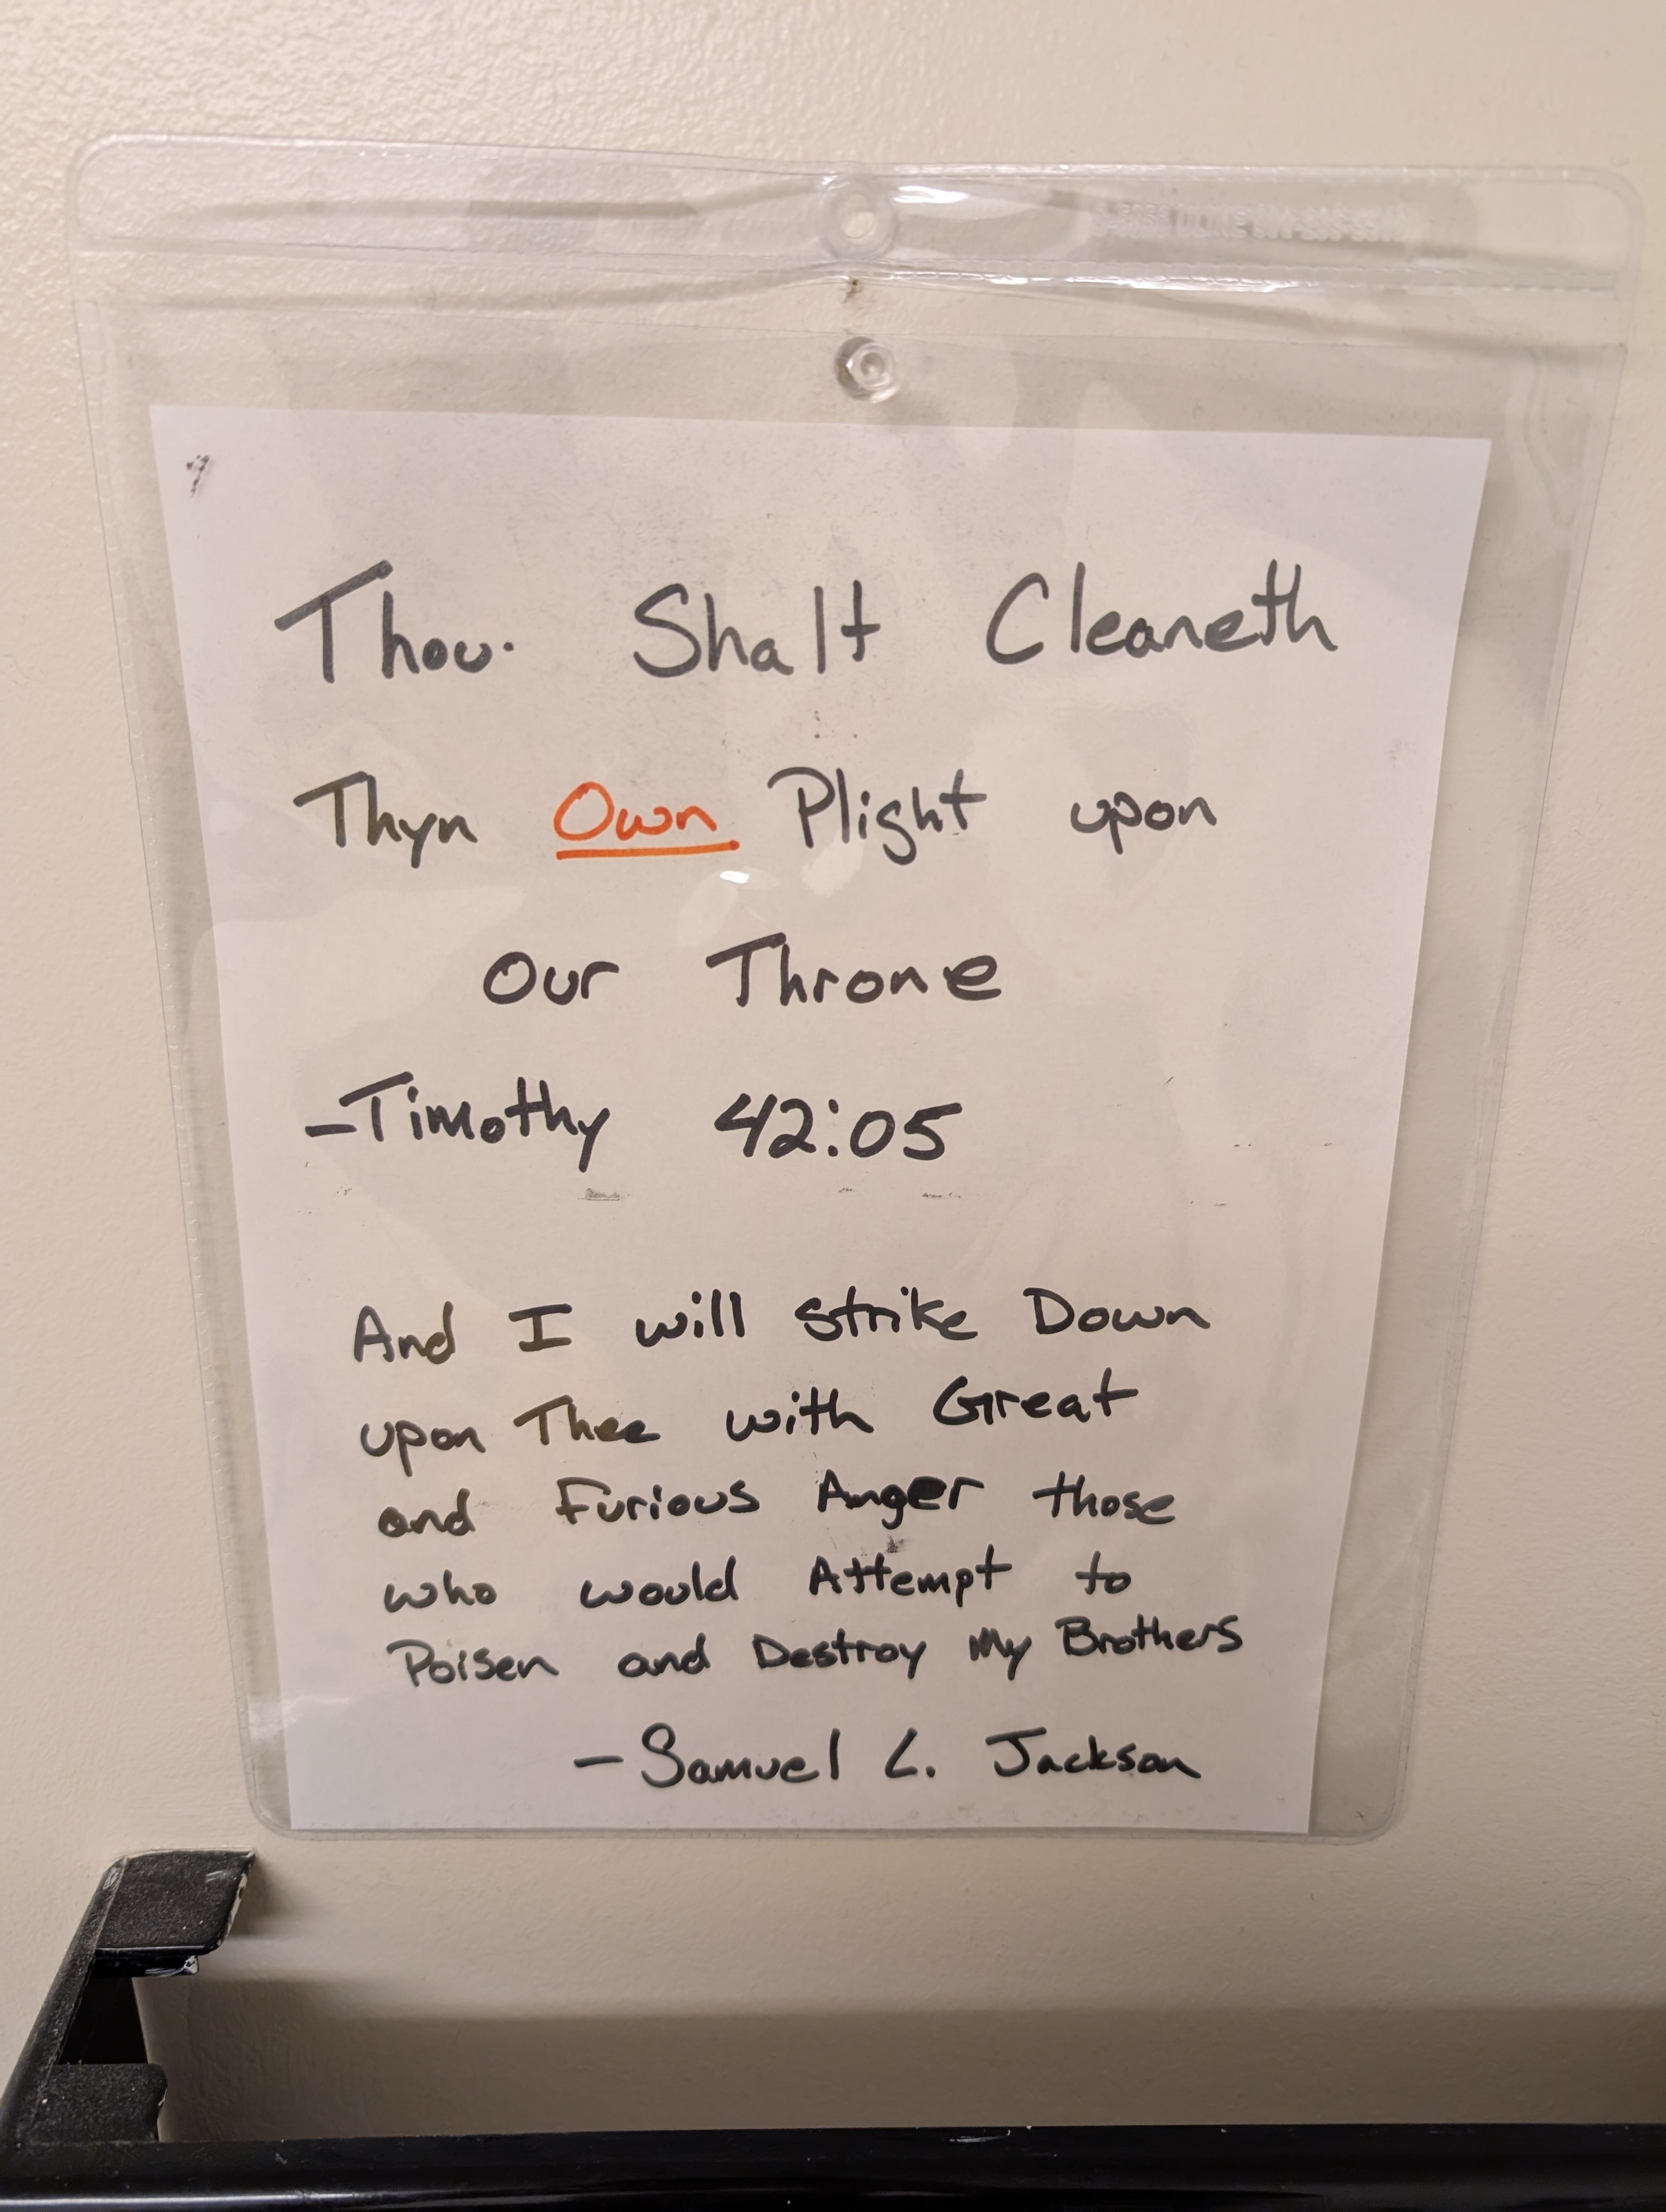 Thou. Shalt Cleaneth
Thyn Own Plight upon
Our Throne
-Timothy 42:05
And I will strike Down
upon Thee with Great
and Furious Anger those
who would Attempt to
Poisen and Destroy My Brothers
- Samuel L. Jackson